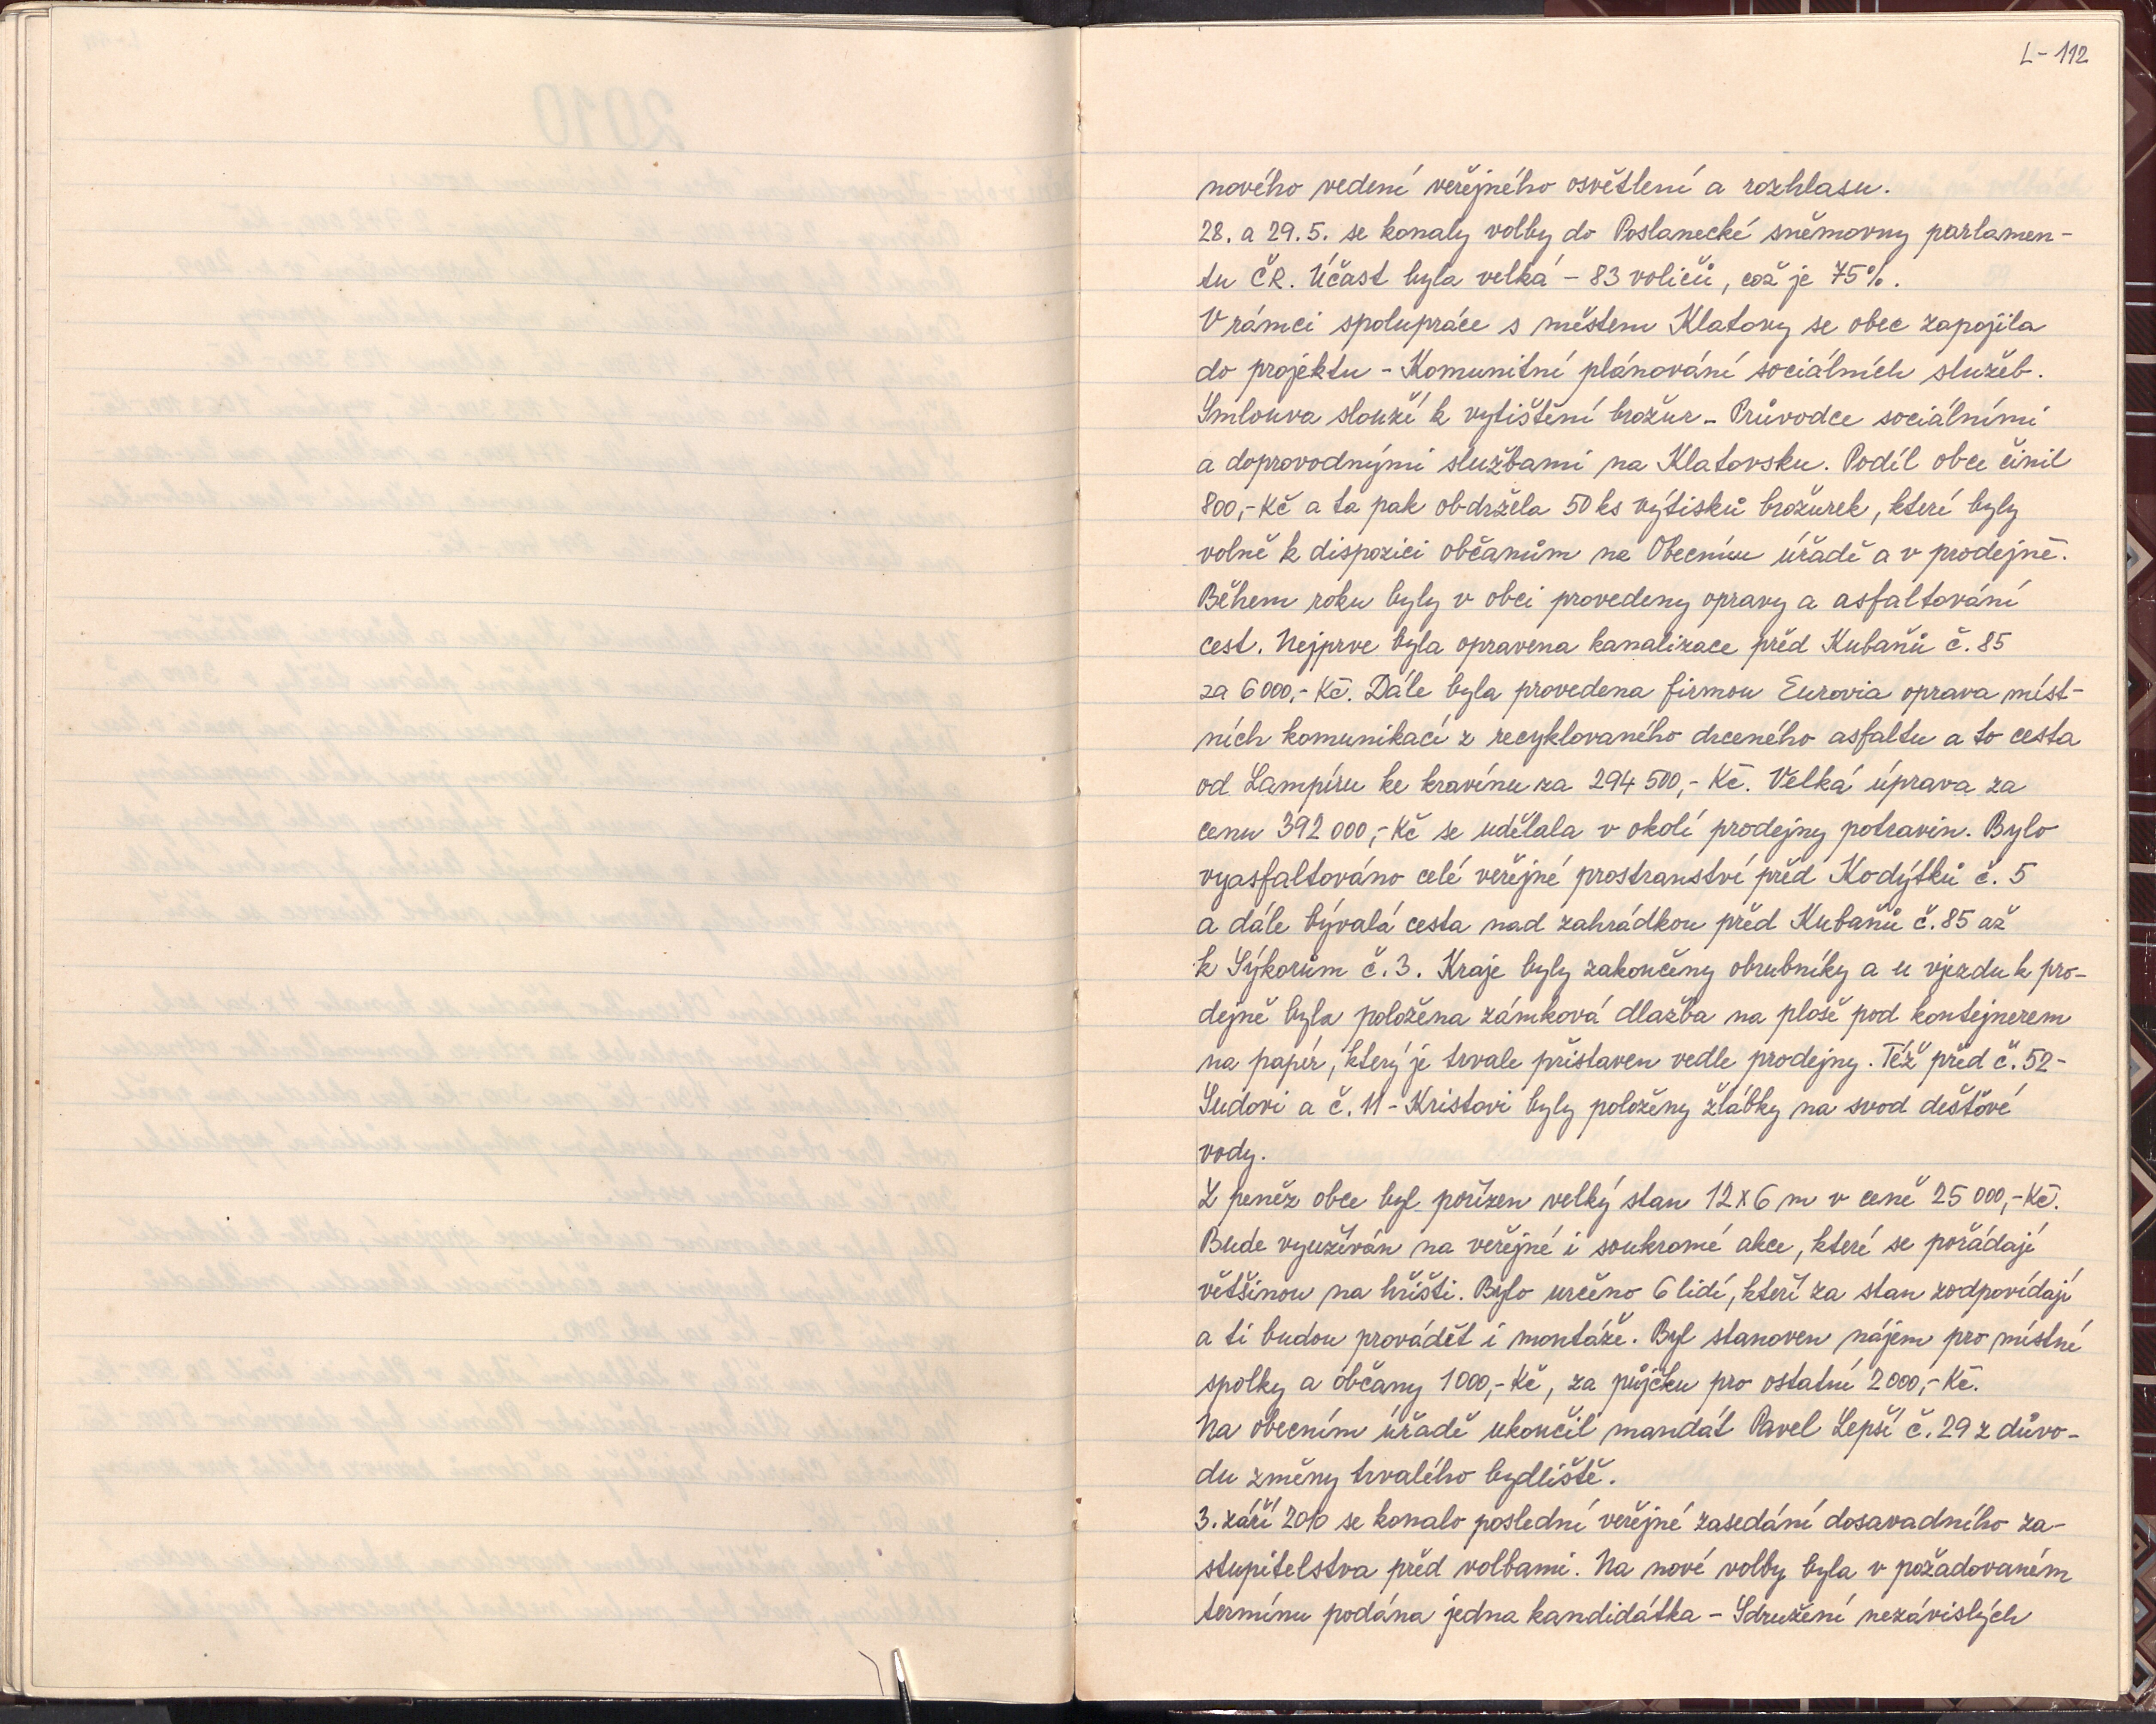 L-112
nového vedení veřejného osvětlení a rozhlasu.
28. a 29.5. se konaly volby do Poslanecké sněmovny parlamen-
tu ČR. Účast byla velká - 83 voličů, což je 75%.
V rámci spolupráce s městem Klatovy se obec zapojila
do projektu - Komunitní plánování sociálních služeb.
Smlouva slouží k vytištění brožur - Průvodce sociálními
a doprovodnými službami na Klatovsku. Podíl obce činil
800,- Kč a ta pak obdržela 50 ks výtisků brožurek, které byly
volně k dispozici občanům na Obecním úřadě a v prodejně.
Během roku byly v obci provedeny opravy a asfaltování
cest. Nejprve byla opravena kanalizace před Kubaňů č. 85
za 6 000,- Kč. Dále byla provedena firmou Eurovia oprava míst-
ních komunikací z recyklovaného drceného asfaltu a to cesta
od Lampíru ke kravínu za 294 500,- Kč. Velká úprava za
cenu 392 000,- Kč se udělala v okolí prodejny potravin. Bylo
vyasfaltováno celé veřejné prostranství před Kodýtků č. 5
a dále bývalá cesta nad zahrádkou před Kubaňů č. 85 až
k Sýkorům č. 3. Kraje byly zakončeny obrubníky a u vjezdu k pro-
dejně byla položena zámková dlažba na ploše pod kontejnerem
na papír, který je trvale přistaven vedle prodejny. Též před č. 52 -
Sudovi a č. 11 - Kristovi byly položeny žlábky na svod dešťové
vody.
Z peněz obce byl pořízen velký stan 12 x 6 m v ceně 25 000,- Kč.
Bude využíván na veřejné i soukromé akce, které se pořádají
většinou na hřišti. Bylo určeno 6 lidí, kteří za stan zodpovídají
a ti budou provádět i montáže. Byl stanoven nájem pro místní
spolky a občany 1000,- Kč, za půjčku pro ostatní 2 000,- Kč.
Na obecním úřadě ukončil mandát Pavel Lepší č. 29 z důvo-
du změny trvalého bydliště.
3. září 2010 se konalo poslední veřejné zasedání dosavadního za-
stupitelstva před volbami. Na nové volby byla v požadovaném
termínu podána jedna kandidátka - Sdružení nezávislých